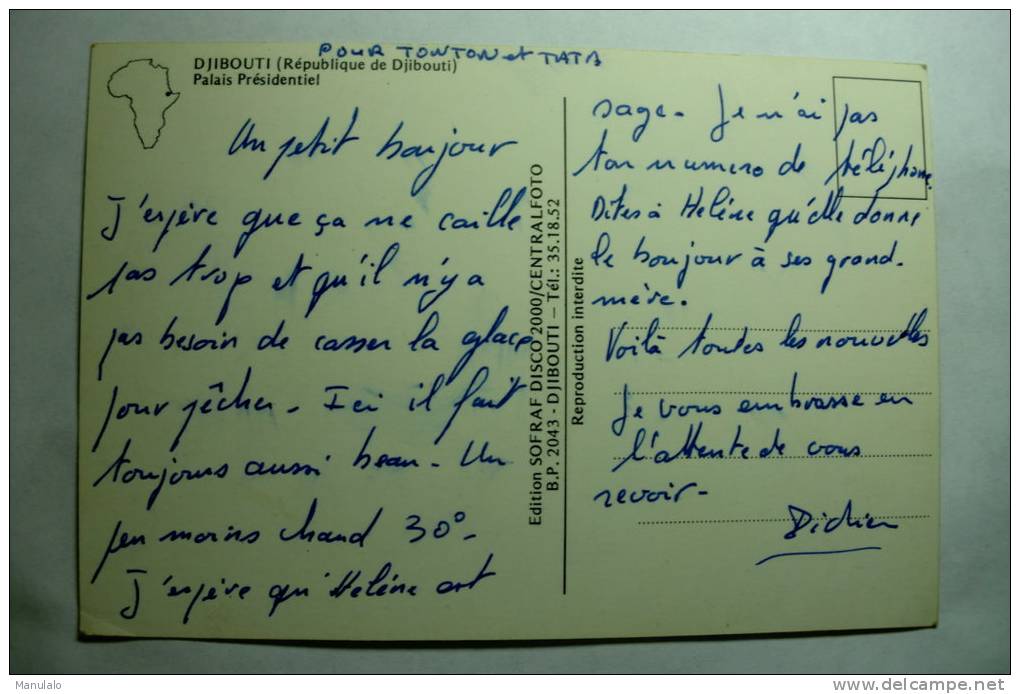 POUR TONTON et TATA
DJIBOUTI (République de Djibouti)
Palais Présidentiel
Un petit bonjour
J'espère que ça ne caille
pas trop et qu'il n'y a
pas besoin de casser la glace
pour pêcher. Ici il fait
toujours aussi beau. Un
peu moins chaud 30°.
J'espère qu'Helène est
Edition SOFRAF DISCO 2000/CENTRALFOTO
B.P. 2043 - DJIBOUTI – Tél.: 35.18.52
Reproduction interdite
sage. Je n'ai pas
ton numero de téléphone.
Dites à Helène qu'elle donne
le bonjour à ses grand-
mère.
Voilà toutes les nouvelles
Je vous embrasse en
l'attente de vous
revoir.
Didier
Manulalo
delcampe.net